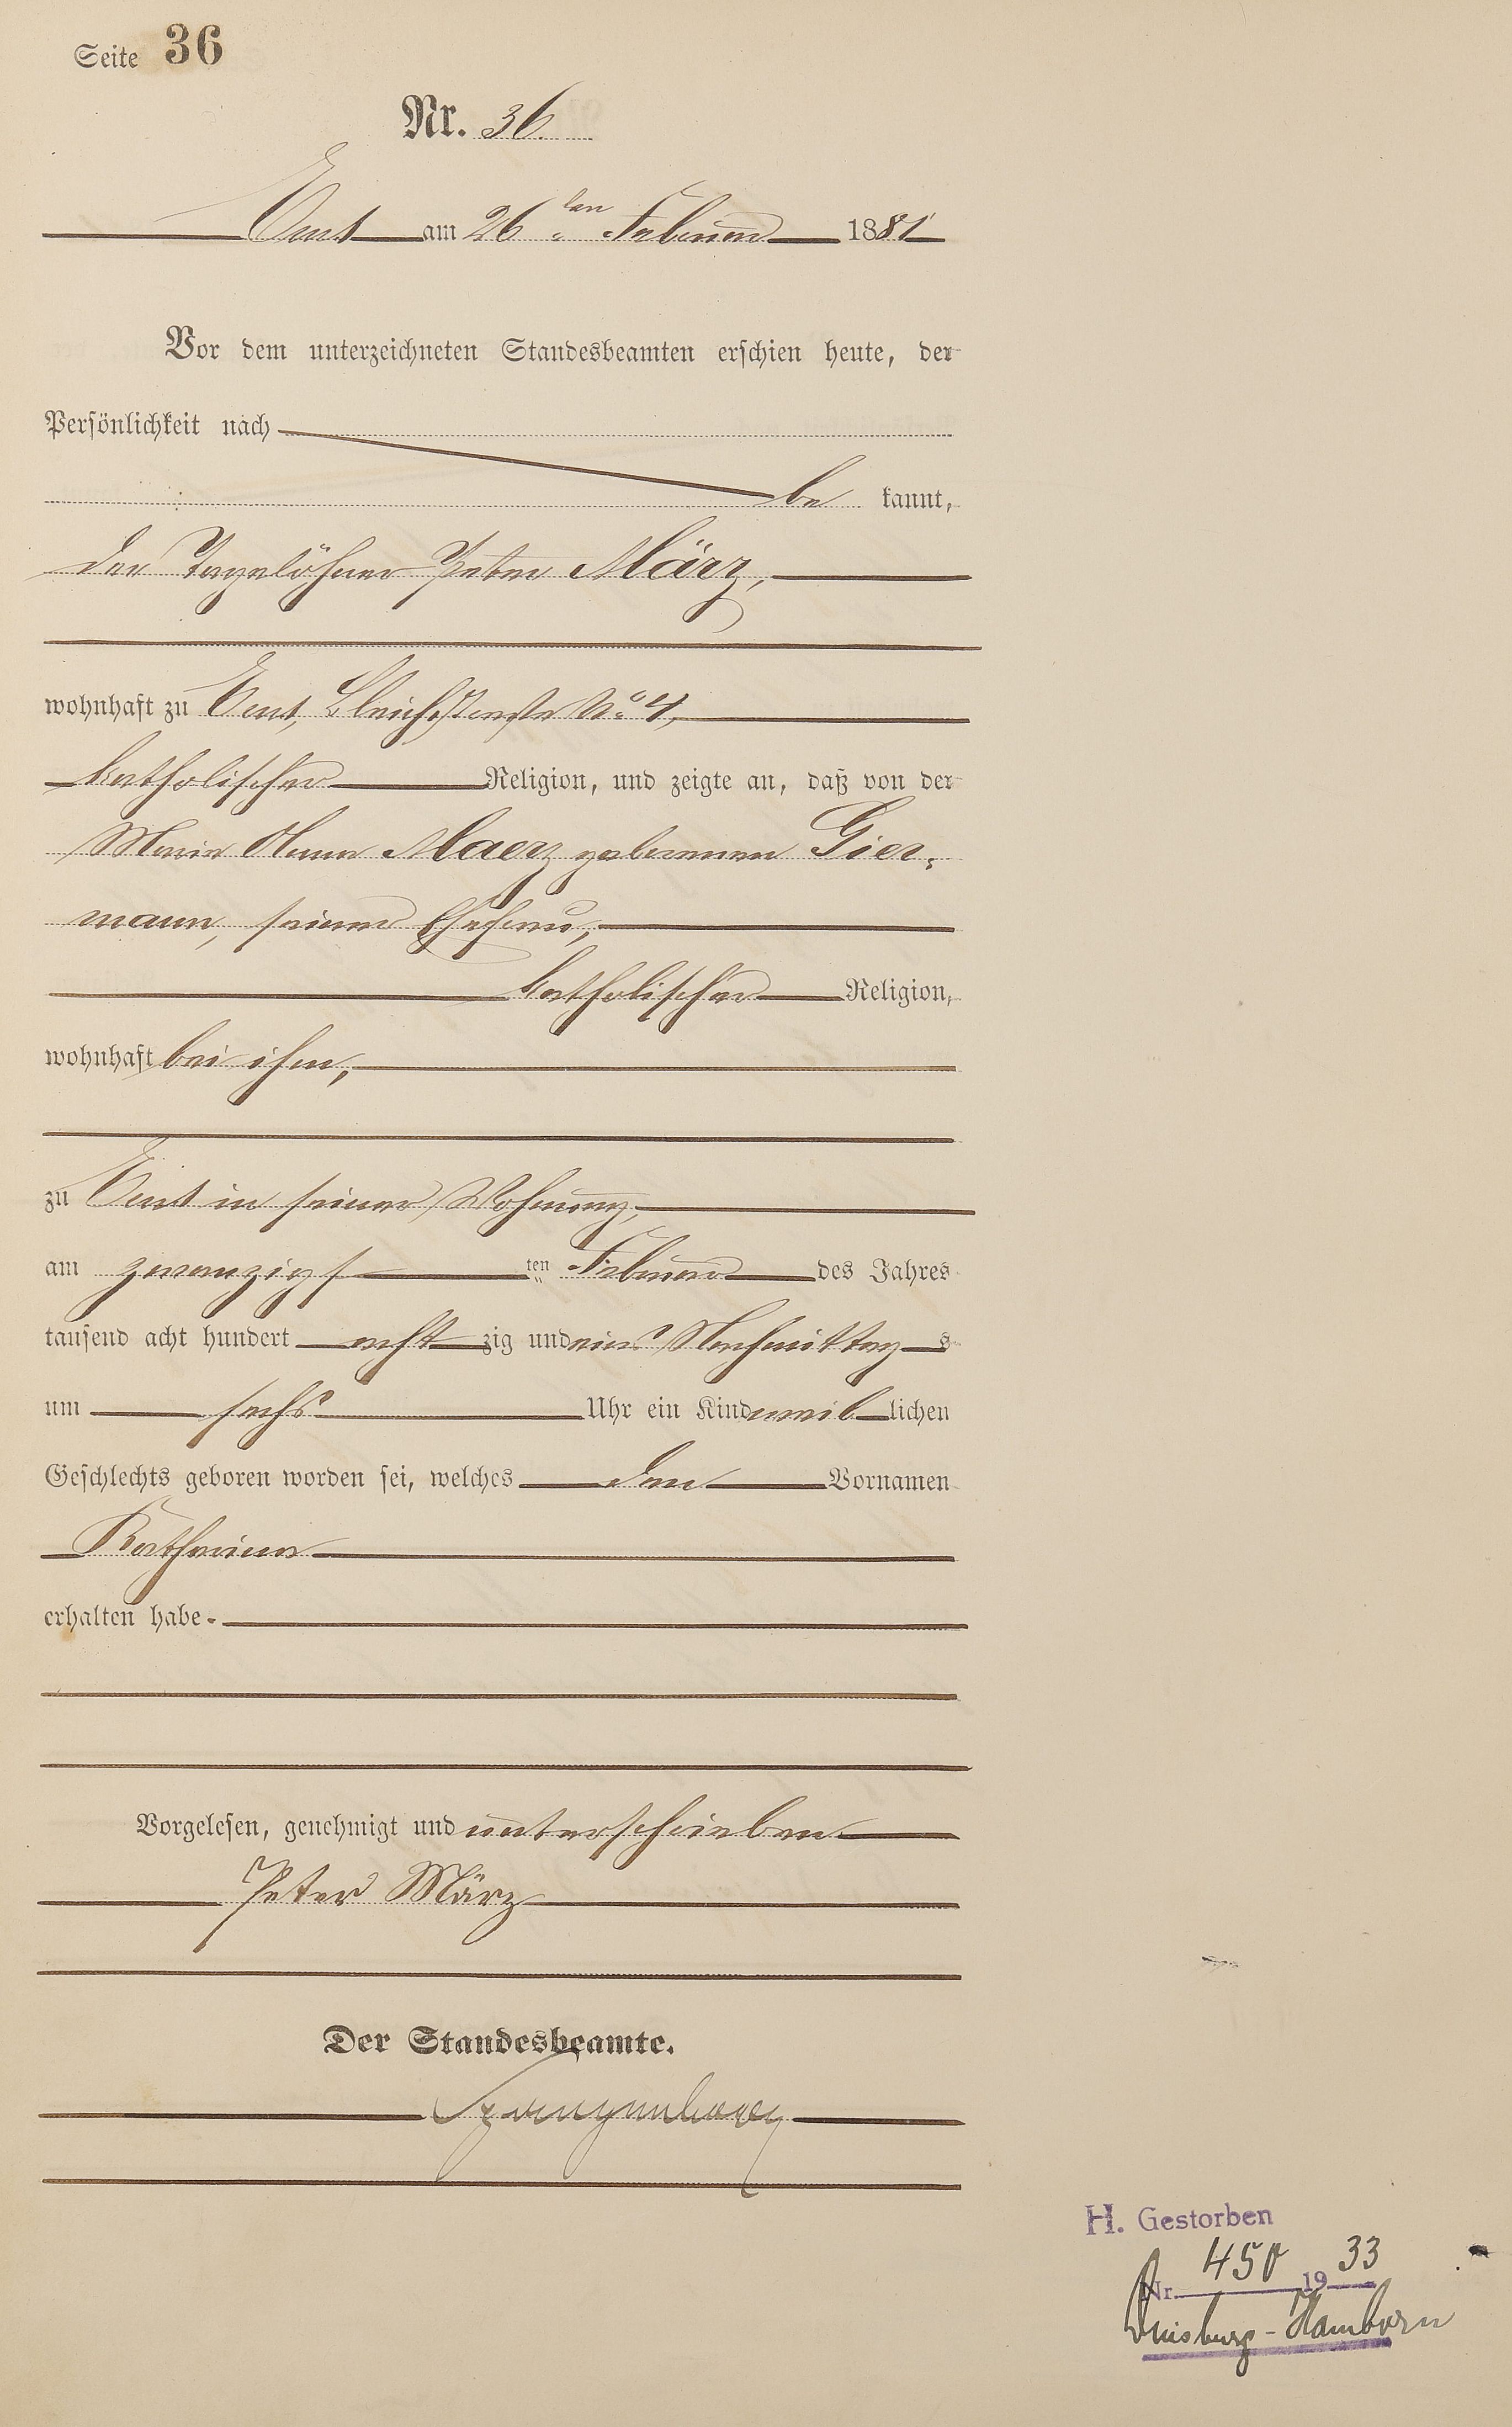 Seite 36
Nr. 36.
am 26ten Februar 1881
Vor dem unterzeichneten Standesbeamten erschien heute, der
Persönlichkeit nach
be kannt,
der Tagelöhner Peter März,
wohnhaft zu No 4,
katholischer Religion, und zeigte an, daß von der
Maria Anna Maerz geborenen Gier-
mann, seiner Ehefrau,
katholischer Religion,
wohnhaft bei ihm,
zu in seiner Wohnung,
am zwanzigsten Februar des Jahres
tausend acht hundert achtzig und eins Nachmittags
um sechs Uhr ein Kind weiblichen
Geschlechts geboren worden sei, welches den Vornamen
Katharina
erhalten habe.
Vorgelesen, genehmigt und unterschrieben
Peter März
Der Standesbeamte.
H. Gestorben
Nr. 450 1933
Duisburg-Hamborn